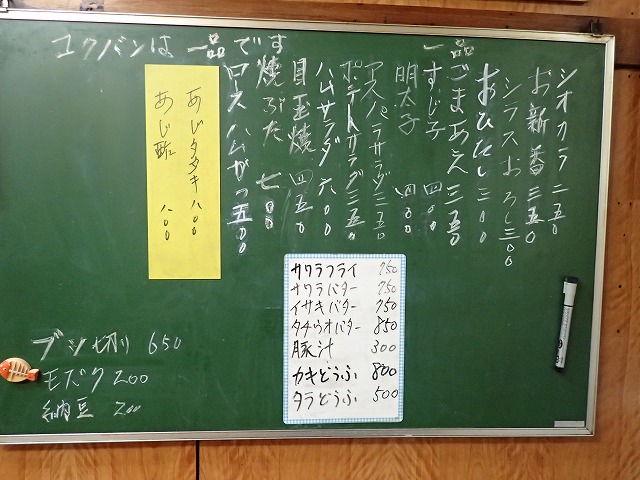 コクバンは一品です
一品
シオカラ 二五〇
お新香 三五〇
シラスおろし 三〇〇
おひたし 三〇〇
ごまあえ 三五〇
すじ子 四〇〇
明太子 四〇〇
アスパラサラダ 三五〇
ポテトサラダ 三五〇
ハムサラダ 六〇〇
目玉焼 四五〇
焼ぶた 七〇〇
ロースハムがつ 五〇〇
あじタタキ 八〇〇
あじ酢 八〇〇
サワラフライ 750
サワラバター 750
イサキバター 750
タチウオバター 850
豚汁 300
カキどうふ 800
タラどうふ 500
ブツ切り 650
モズク 200
納豆 200